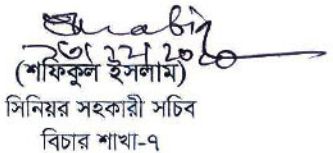 (শফিকুল ইসলাম)
সিনিয়র সহকারী সচিব
বিচার শাখা-৭